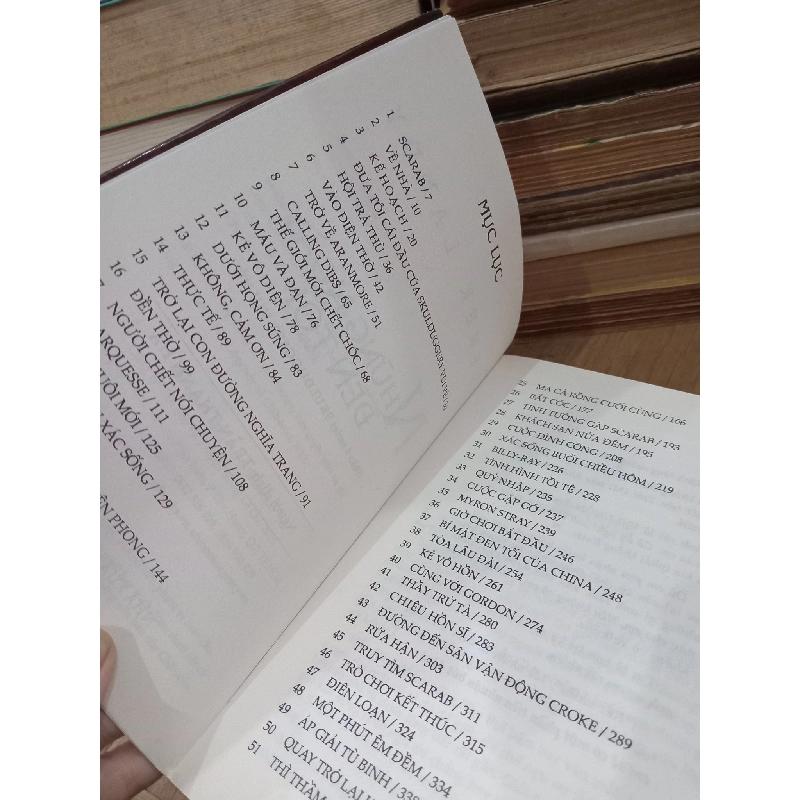 MỤC LỤC
1 SCARAB / 7
2 VỀ NHÀ / 10
3 KẾ HOẠCH / 20
4 ĐƯA TÔI CÁI ĐẦU CỦA
5 HỘI TRẢ THÙ / 36
6 VÀO ĐIỆN THỜ / 42
7 TRỞ VỀ ARANMORE / 51
8 CALLING DIBS / 63
9 THẾ GIỚI MỚI CHẾT CHÓC / 68
10 MÁU VÀ ĐẠN / 76
11 KẺ VÔ DIỆN / 78
12 DƯỚI HỌNG SÚNG / 83
13 KHÔNG, CẢM ƠN / 84
14 THỰC TẾ / 89
15 TRỞ LẠI CON ĐƯỜNG NGHĨA TRANG / 91
16 ĐỀN THỜ / 99
NGƯỜI CHẾT NÓI CHUYỆN / 108
ARQUESSE / 111
MỚI / 125
XÁC SỐNG / 129
PHONG / 144
25 MA CÀ RỒNG CUỐI CÙNG / 166
26 BẮT CÓC / 177
27 TÌNH TƯỞNG GẶP SCARAB / 193
28 KHÁCH SẠN NỬA ĐÊM / 195
29 CUỘC ĐÌNH CÔNG / 208
30 XÁC SỐNG BUỔI CHIỀU HÔM / 219
31 BILLY-RAY / 226
32 TÌNH HÌNH TỒI TỆ / 228
33 QUỶ NHẬP / 235
34 CUỘC GẶP GỠ / 237
35 MYRON STRAY / 239
36 GIỜ CHƠI BẮT ĐẦU / 246
37 BÍ MẬT ĐEN TỐI CỦA CHINA / 248
38 TÒA LÂU ĐÀI / 254
39 KẺ VÔ HỒN / 261
40 CÙNG VỚI GORDON / 274
41 THẦY TRỪ TÀ / 280
42 CHIÊU HỒN SĨ / 283
43 ĐƯỜNG ĐẾN SÂN VẬN ĐỘNG CROKE / 289
44 RỬA HẬN / 303
45 TRUY TÌM SCARAB / 311
46 TRÒ CHƠI KẾT THÚC / 315
47 ĐIÊN LOẠN / 324
48 MỘT PHÚT ÊM ĐỀM / 334
49 ÁP GIẢI TÙ BINH / 338
50 QUAY TRỞ LẠI
51 THÌ THẦM